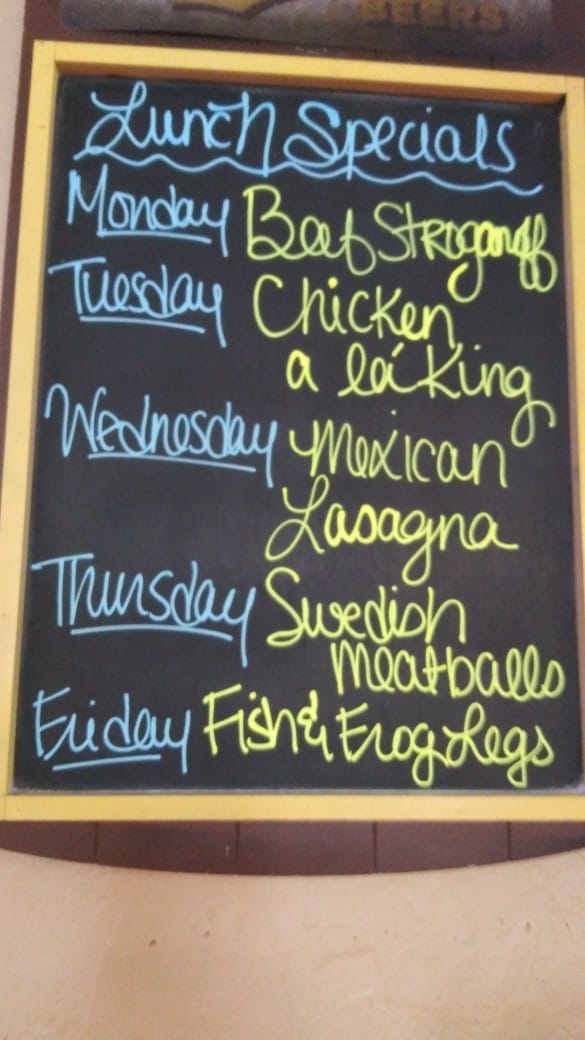 BEERS
Lunch Specials
Monday Beef Stroganoff
Tuesday Chicken
a lá King
Wednesday Mexican
Lasagna
Thursday Swedish
Meatballs
Friday Fish & Frog Legs